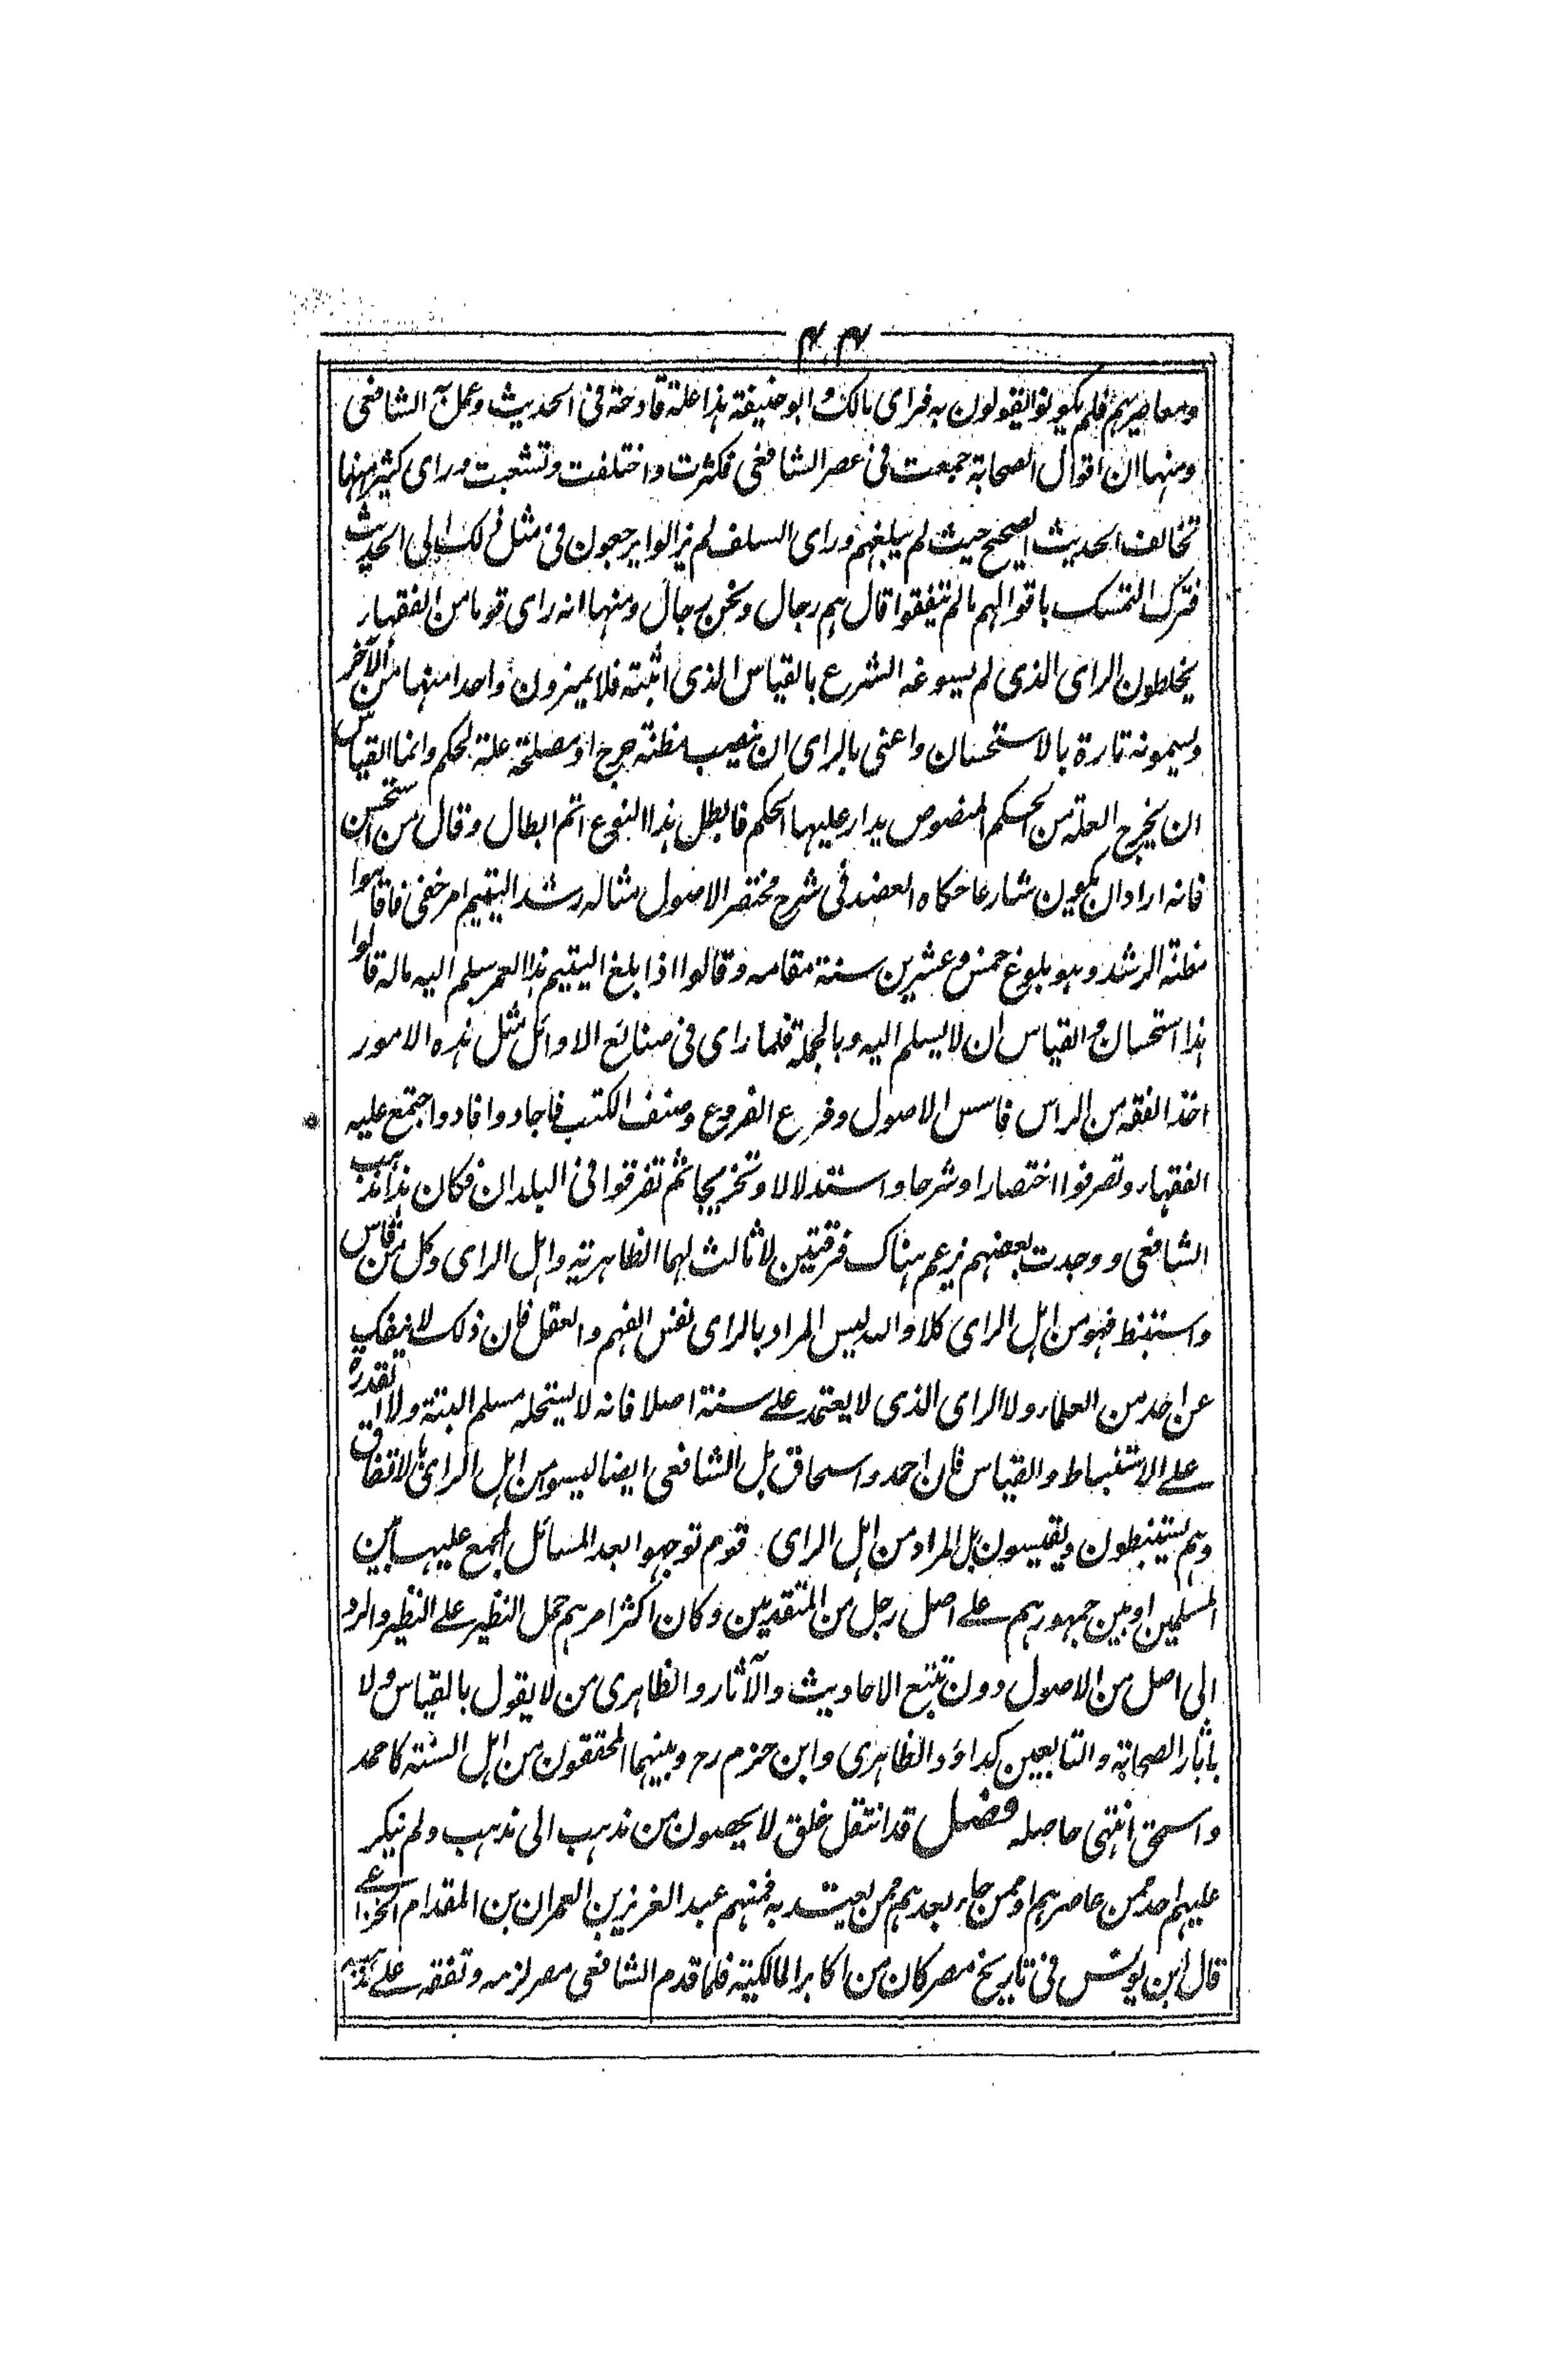 ۴۴
ومعاصريهم فلم يكونوا يقولون به فراى مالك وابو حنيفة هذا علة قادحة فى الحديث وعمل به الشافعى
ومنها ان اقوال الصحابة جمعت فى عصر الشافعى فكثرت واختلفت وتشعبت وراى كثيرا منها
تخالف الحديث الصحيح حيث لم يبلغهم وراى السلف لم يزالوا يرجعون فى مثل ذلك الى الحديث
فترك التمسك باقوالهم ما لم يتفقوا قال هم رجال ونحن رجال ومنها انه راى قوما من الفقهاء
يخلطون الراى الذى لم يسوغه الشرع بالقياس الذى اثبته فلا يميزون واحدا منهما من الآخر
ويسمونه تارة بالاستحسان واعنى بالراى ان ينصب مظنة حرج او مصلحة علة لحكم وانما القياس
ان يخرج العلة من الحكم المنصوص يدار عليها الحكم فابطل هذا النوع اتم ابطال وقال من استحسن
فانه اراد ان يكون شارعا حكاه العضد فى شرح مختصر الاصول مثاله رشد اليتيم امر خفى فاقاموا
مظنة الرشد وهو بلوغ خمس وعشرين سنة مقامه وقالوا اذا بلغ اليتيم هذا العمر سلم اليه ماله قالوا
هذا استحسان والقياس ان لا يسلم اليه وبالجملة فلما راى فى صنائع الاوائل مثل هذه الامور
اخذ الفقه من الراس فاسس الاصول وفرع الفروع وصنف الكتب فاجاد وافاد واجتمع عليه
الفقهاء وتصرفوا اختصارا وشرحا واستدلالا وتخريجا ثم تفرقوا فى البلدان فكان هذا مذهب
الشافعى ووجدت بعضهم يزعم هناك فرقتين لا ثالث لهما الظاهرية واهل الراى وكل من قاس
واستنبط فهو من اهل الراى كلا والله ليس المراد بالراى نفس الفهم والعقل فان ذلك لا ينفك
عن احد من العلماء ولا الراى الذى لا يعتمد على سنة اصلا فانه لا ينتحله مسلم البتة ولا القدرة
على الاستنباط والقياس فان احمد واسحاق بل الشافعى ايضا ليسوا من اهل الراى بالاتفاق
وهم يستنبطون ويقيسون بل المراد من اهل الراى قوم توجهوا بعد المسائل المجمع عليها بين
المسلمين او بين جمهورهم على اصل رجل من المتقدمين وكان اكثر امرهم حمل النظير على النظير والرد
الى اصل من الاصول دون تتبع الاحاديث والآثار والظاهرى من لا يقول بالقياس ولا
بآثار الصحابة والتابعين كداؤد الظاهرى وابن حزم رح وبينهما المحققون من اهل السنة كاحمد
واسحق انتهى حاصله فصل قد انتقل خلق لا يحصون من مذهب الى مذهب ولم ينكر
عليهم احد ممن عاصرهم او ممن جاء بعدهم ممن يعتد به فمنهم عبد العزيز بن العمران بن المقدام الخزاعى
قال ابن يونس فى تاريخ مصر كان من اكابر المالكية فلما قدم الشافعى مصر لزمه وتفقه على مذهبه